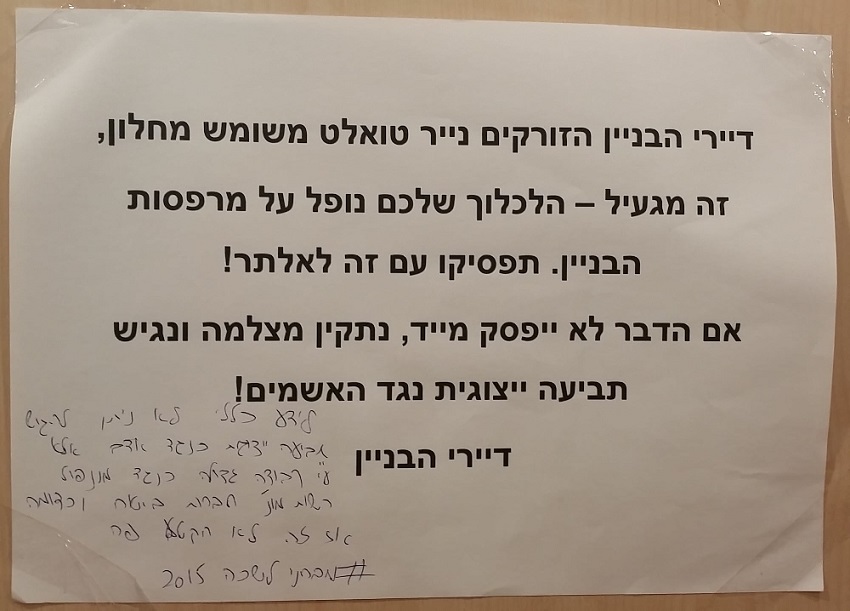 דיירי הבניין הזורקים נייר טואלט משומש מחלון,
זה מגעיל – הלכלוך שלכם נופל על מרפסות
הבניין. תפסיקו עם זה לאלתר!
אם הדבר לא ייפסק מייד, נתקין מצלמה ונגיש
תביעה ייצוגית נגד האשמים!
דיירי הבניין
לידע כללי לא ניתן להגיש
תביעה ייצוגית כנגד אדם אלא
ע"י קבוצה גדולה כנגד מונופול
רשות מונ' חברות ביטוח וכדומה
אז זה לא הקטע פה
לשכה 2015